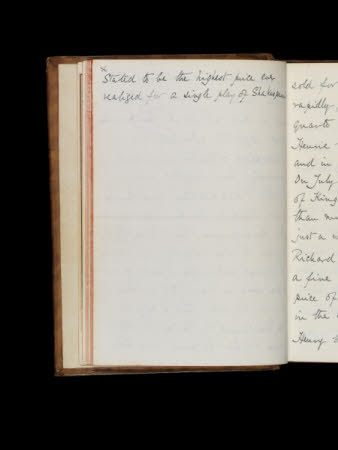 x
Stated to be the highest price ever
realized for a single play of Shakespeare
sold for
rapidly
quarto
Henrie
and in
On July
of King
than
just a
Richard
a fine
price of
in the
Henry